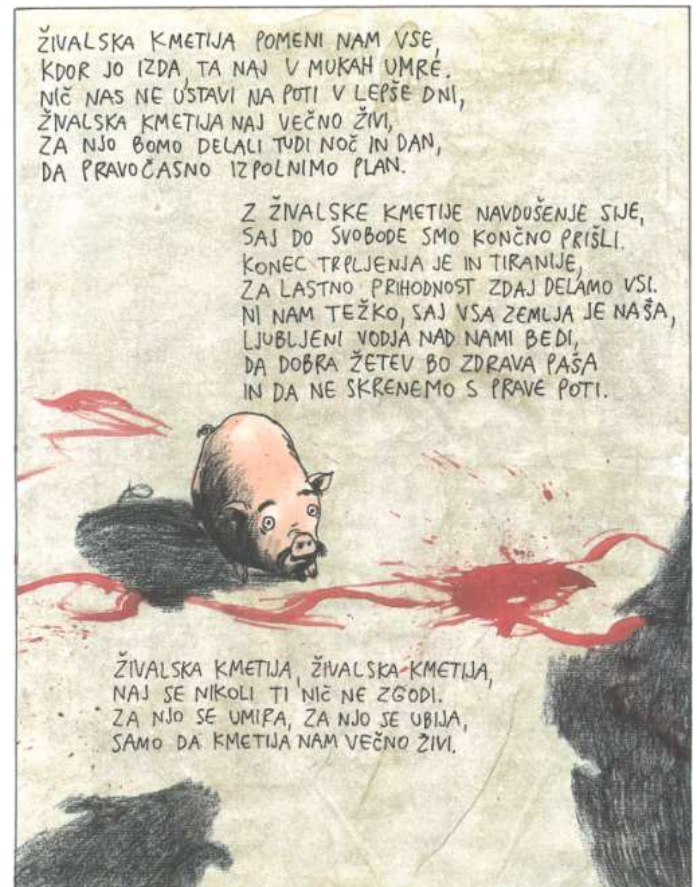 ŽIVALSKA KMETIJA POMENI NAM VSE,
KDOR JO IZDA, TA NAJ V MUKAH UMRE.
NIČ NAS NE USTAVI NA POTI V LEPŠE DNI,
ŽIVALSKA KMETIJA NAJ VEČNO ŽIVI,
ZA NJO BOMO DELALI TUDI NOČ IN DAN,
DA PRAVOČASNO IZPOLNIMO PLAN.
Z ŽIVALSKE KMETIJE NAVDUŠENJE SIJE,
SAJ DO SVOBODE SMO KONČNO PRIŠLI.
KONEC TRPLJENJA JE IN TIRANIJE,
ZA LASTNO PRIHODNOST ZDAJ DELAMO VSI.
NI NAM TEŽKO, SAJ VSA ZEMLJA JE NAŠA,
LJUBLJENI VODJA NAD NAMI BEDI,
DA DOBRA ŽETEV BO ZDRAVA PAŠA
IN DA NE SKRENEMO S PRAVE POTI.
ŽIVALSKA KMETIJA, ŽIVALSKA KMETIJA,
NAJ SE NIKOLI TI NIČ NE ZGODI.
ZA NJO SE UMIRA, ZA NJO SE UBIJA,
SAMO DA KMETIJA NAM VEČNO ŽIVI.